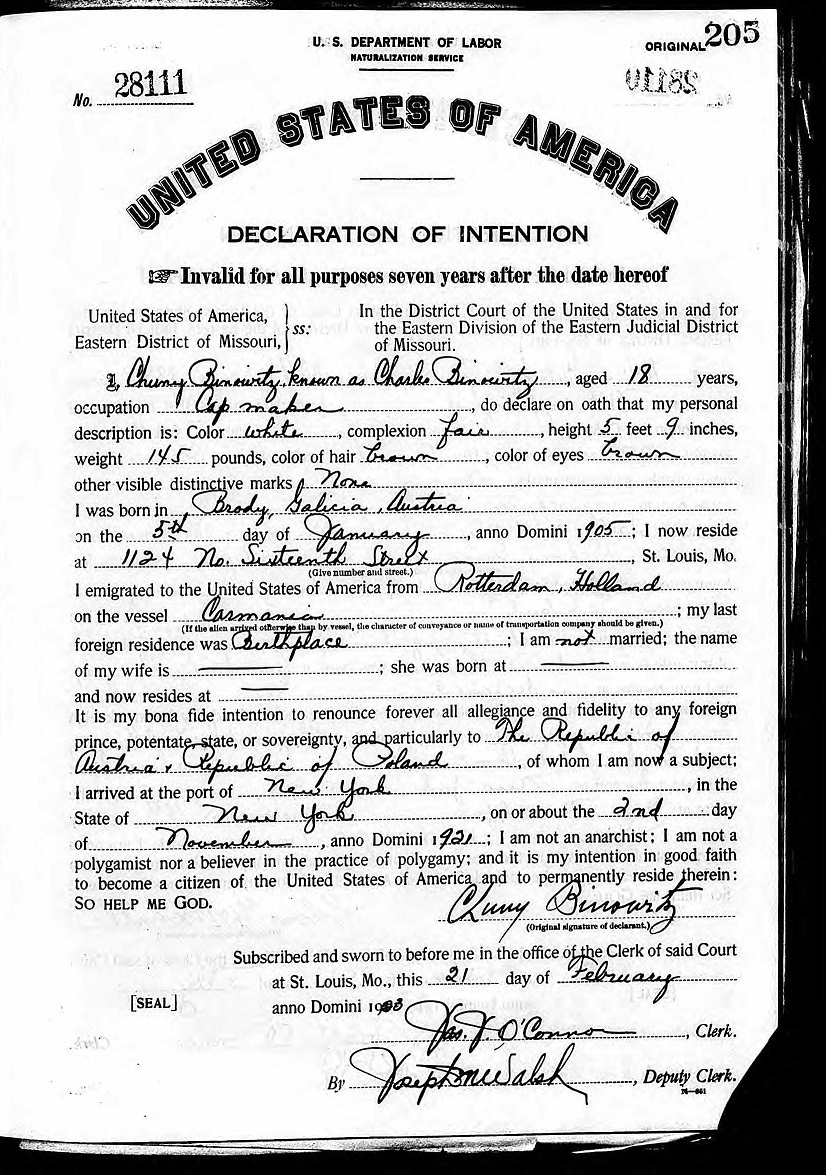 205
U. S. DEPARTMENT OF LABOR
NATURALIZATION SERVICE
ORIGINAL
No. 28111
28110
UNITED STATES OF AMERICA
DECLARATION OF INTENTION
☞ Invalid for all purposes seven years after the date hereof
United States of America,
Eastern District of Missouri,
ss:
In the District Court of the United States in and for
the Eastern Division of the Eastern Judicial District
of Missouri.
I, Chuny Binowitz, known as Charles Binowitz, aged 18 years,
occupation Cap maker, do declare on oath that my personal
description is: Color white, complexion fair, height 5 feet 9 inches,
weight 145 pounds, color of hair brown, color of eyes brown
other visible distinctive marks None
I was born in Brody, Galicia, Austria
on the 5th day of January, anno Domini 1905; I now reside
at 1124 No. Sixteenth Street, St. Louis, Mo.
(Give number and street.)
I emigrated to the United States of America from Rotterdam, Holland
on the vessel Carmania; my last
(If the alien arrived otherwise than by vessel, the character of conveyance or name of transportation company should be given.)
foreign residence was Birthplace; I am not married; the name
of my wife is ; she was born at
and now resides at
It is my bona fide intention to renounce forever all allegiance and fidelity to any foreign
prince, potentate, state, or sovereignty, and particularly to The Republic of
Austria & Republic of Poland, of whom I am now a subject;
I arrived at the port of New York, in the
State of New York, on or about the 2nd day
of November, anno Domini 1921; I am not an anarchist; I am not a
polygamist nor a believer in the practice of polygamy; and it is my intention in good faith
to become a citizen of the United States of America and to permanently reside therein:
SO HELP ME GOD.
Chuny Binowitz
(Original signature of declarant.)
Subscribed and sworn to before me in the office of the Clerk of said Court
at St. Louis, Mo., this 21 day of February
[SEAL]
anno Domini 1923
Jas. J. O'Connor, Clerk.
By Joseph M Walsh, Deputy Clerk.